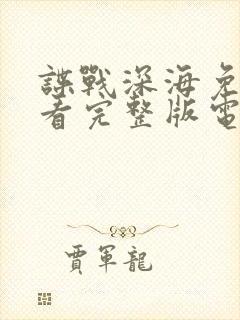 諜戰深海免
看完整版電
賈軍龍